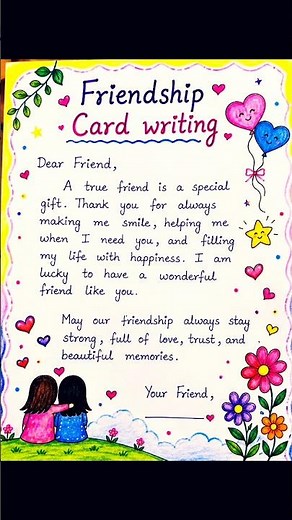 Friendship
Card writing
Dear Friend,
A true friend is a special
gift. Thank you for always
making me smile, helping me
when I need you, and filling
my life with happiness. I am
lucky to have a wonderful
friend like you.
May our friendship always stay
strong, full of love, trust, and
beautiful memories.
Your Friend,